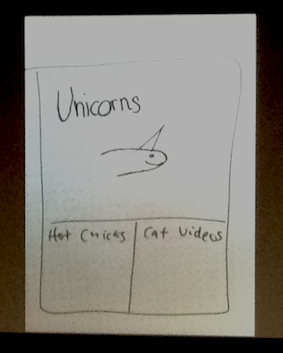 Unicorns
Hot Chicks
Cat Videos